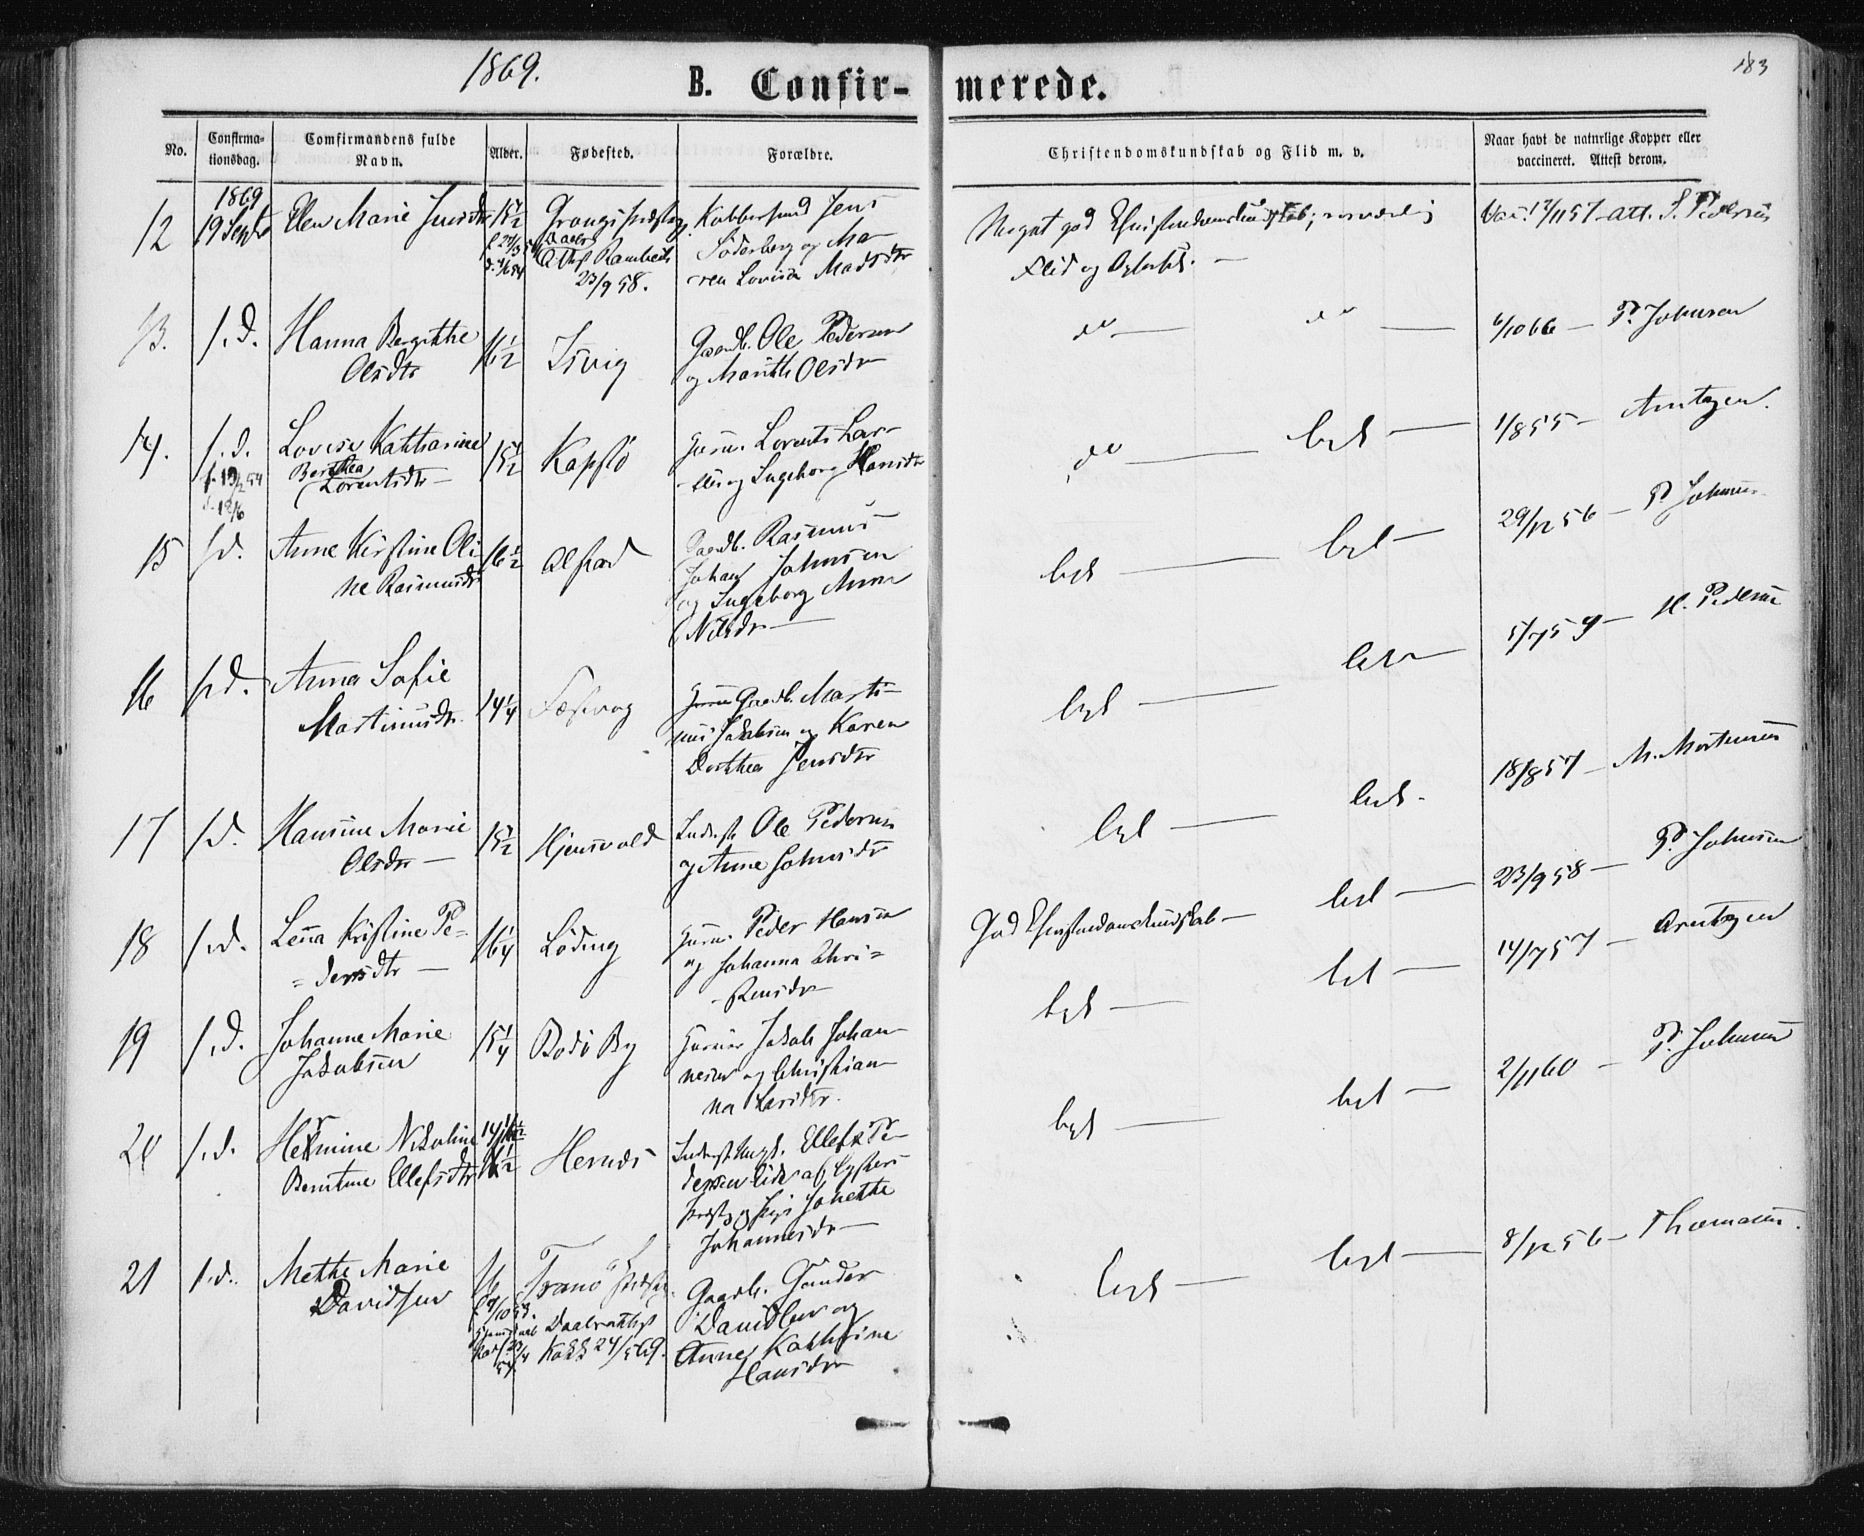 1869.
183
B. Confirmerede.
No.
Confirmationsdag.
Comfirmandens fulde Navn.
Alder.
Fødested.
Forældre.
Christendomskundskab og Flid m. v.
Naar havt de naturlige Kopper eller vaccineret. Attest derom.
1869
12 19 Septb Elen Marie Jensdtr 15½
23/9 58.
Kobbersmed Jens
Söderberg og Ma-
ren Lovisa Madsdtr
Meget god Christendomskundskab;
Flid og Opførsel.
Vac. 17/11 57 att. S. Pedersen
13. s.d. Hanna Bergitthe
Olsdtr
16½ Isvig
Gaardb. Ole Pedersen
og Marith Olsdtr
do — do —
6/10 66 — P. Johnsen
14. s.d. Lovise Katharine
Berthea
Lorentsdtr —
f. 19/2 54
15½ Kapslø
Huusm. Lorents Lar-
sen og Ingeborg Hansdtr
do — lgs —
1/8 55 — Arntzen.
15 s.d. Anne Kirstine Oli
ne Rasmusdtr
16½ Alstad
Gaardb. Rasmus
Johan Johnsen
og Ingeborg Anna
Nilsdtr —
lgs — lgs —
29/12 56 — P Johnsen
16 s.d. Anna Sofie
Martinusdtr.
14¼ Festvog
Gaardb. Marti-
nus Jakobsen og Karen
Dorthea Jensdtr
lgs — lgs —
5/7 59 — H. Pedersen
17 s.d. Hansine Marie
Olsdtr —
15½ Hjernvold
Inderst Ole Pedersen
og Anne Johnsdtr
lgs — lgs.
18/8 57 — M. Mortensen
18 s.d. Lena Kristine Pe=
=dersdtr —
16¼ Löding
Huusm. Peder Hansen
og Johanna Chri=
-stensdtr
God Christendomskundskab — lgs —
23/9 58 — P. Johnsen
19 s.d. Johanne Marie
Jakobsen
15¼ Bodö By
Jakob Johan-
nesen og Christian-
na Larsdtr.
lgs — lgs —
14/7 57 — Arntzen
20 s.d. Hermine Nikoline
Berntine Ellefsdtr
Hernes
Ellef Pe-
dersen
Johannesdtr —
lgs — lgs —
2/11 60 — P. Johnsen
21 s.d. Methe Marie
Davidsen
16
f. 9/10 53.
Tranö Præstgj.
24/5 69.
Gaardb. Gunder
Davidsen og
Anne Kathrine
Hansdtr
lgs — lgs —
8/12 56 — Thomasen.